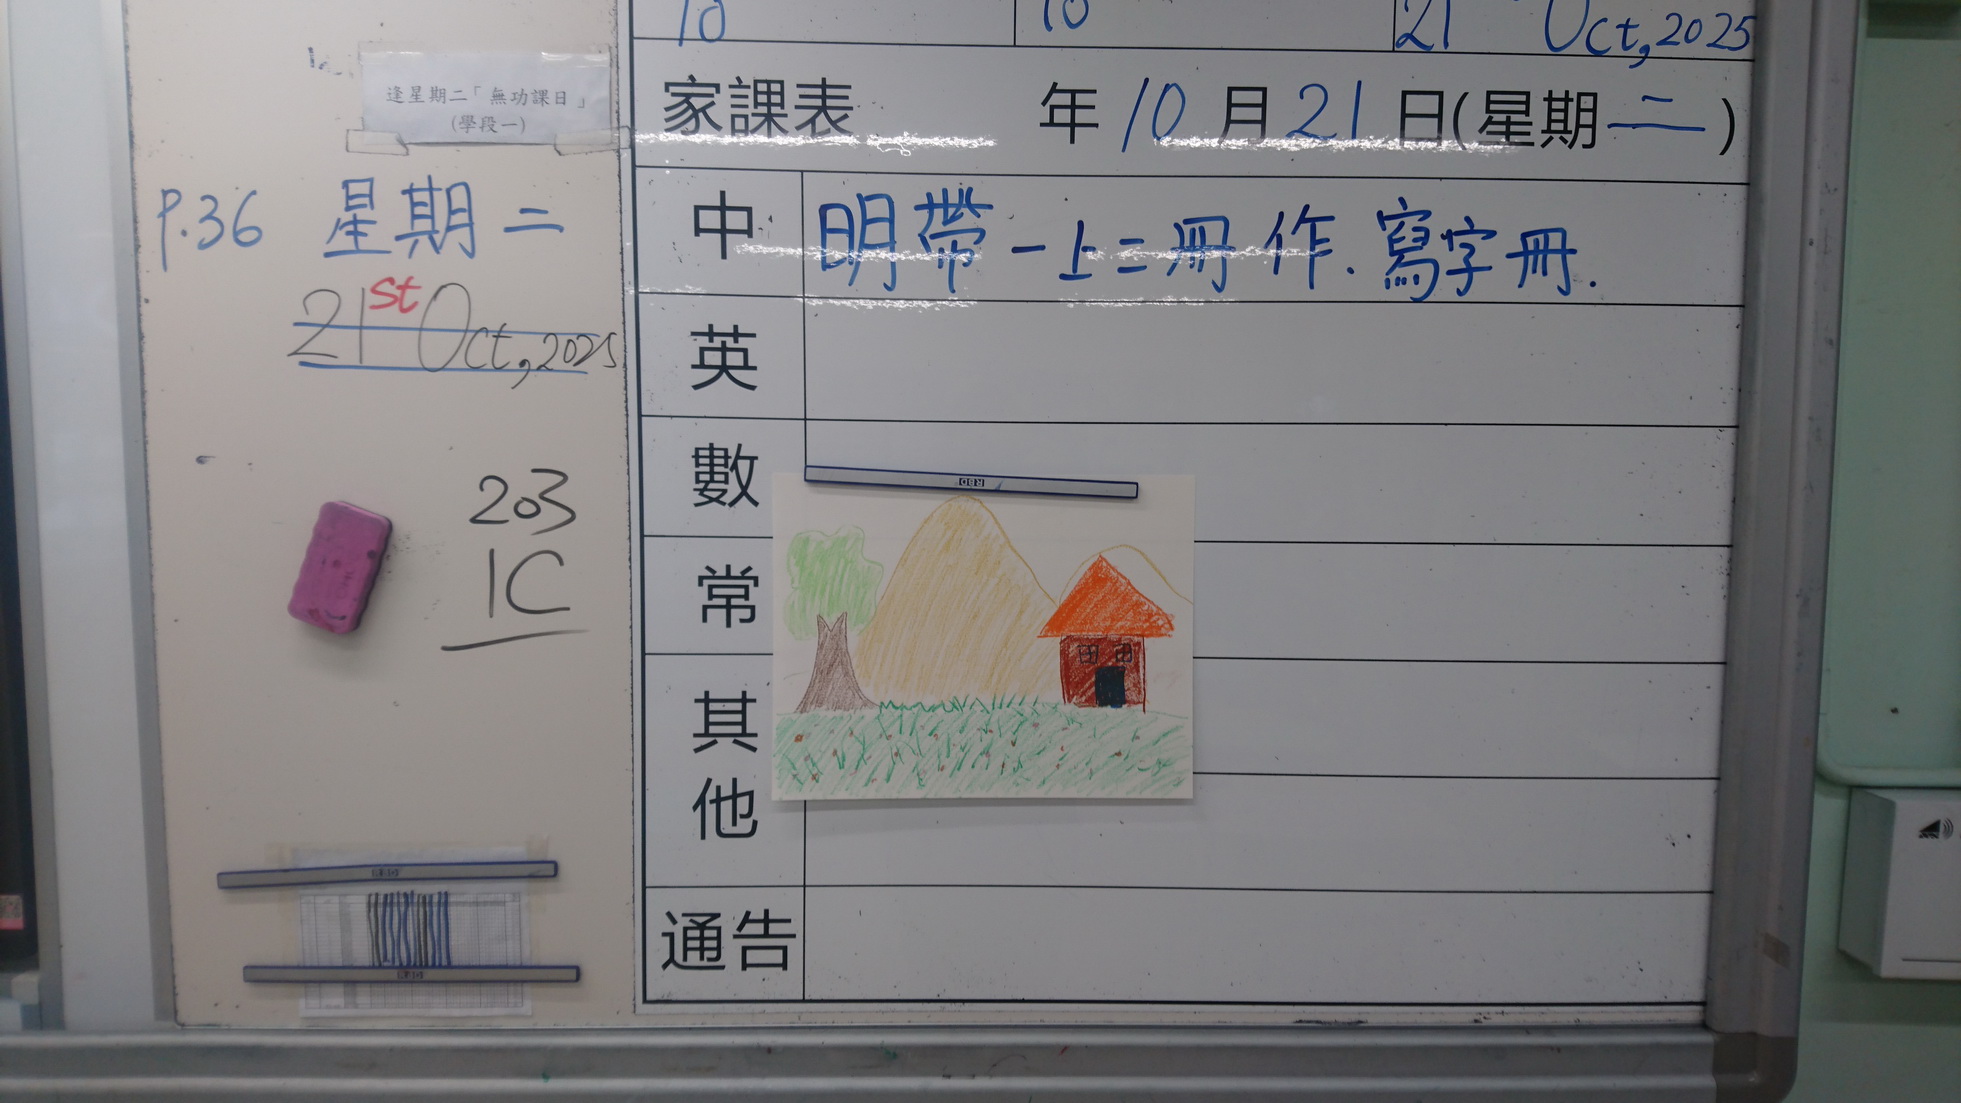 10 10 21 Oct, 2025
逢星期二「無功課日」
(學段一)
家課表 年 10 月 21 日(星期二)
P.36 星期二
21st Oct, 2025
中 明帶一上二冊作.寫字冊.
英
數
203
1C
常
其他
通告